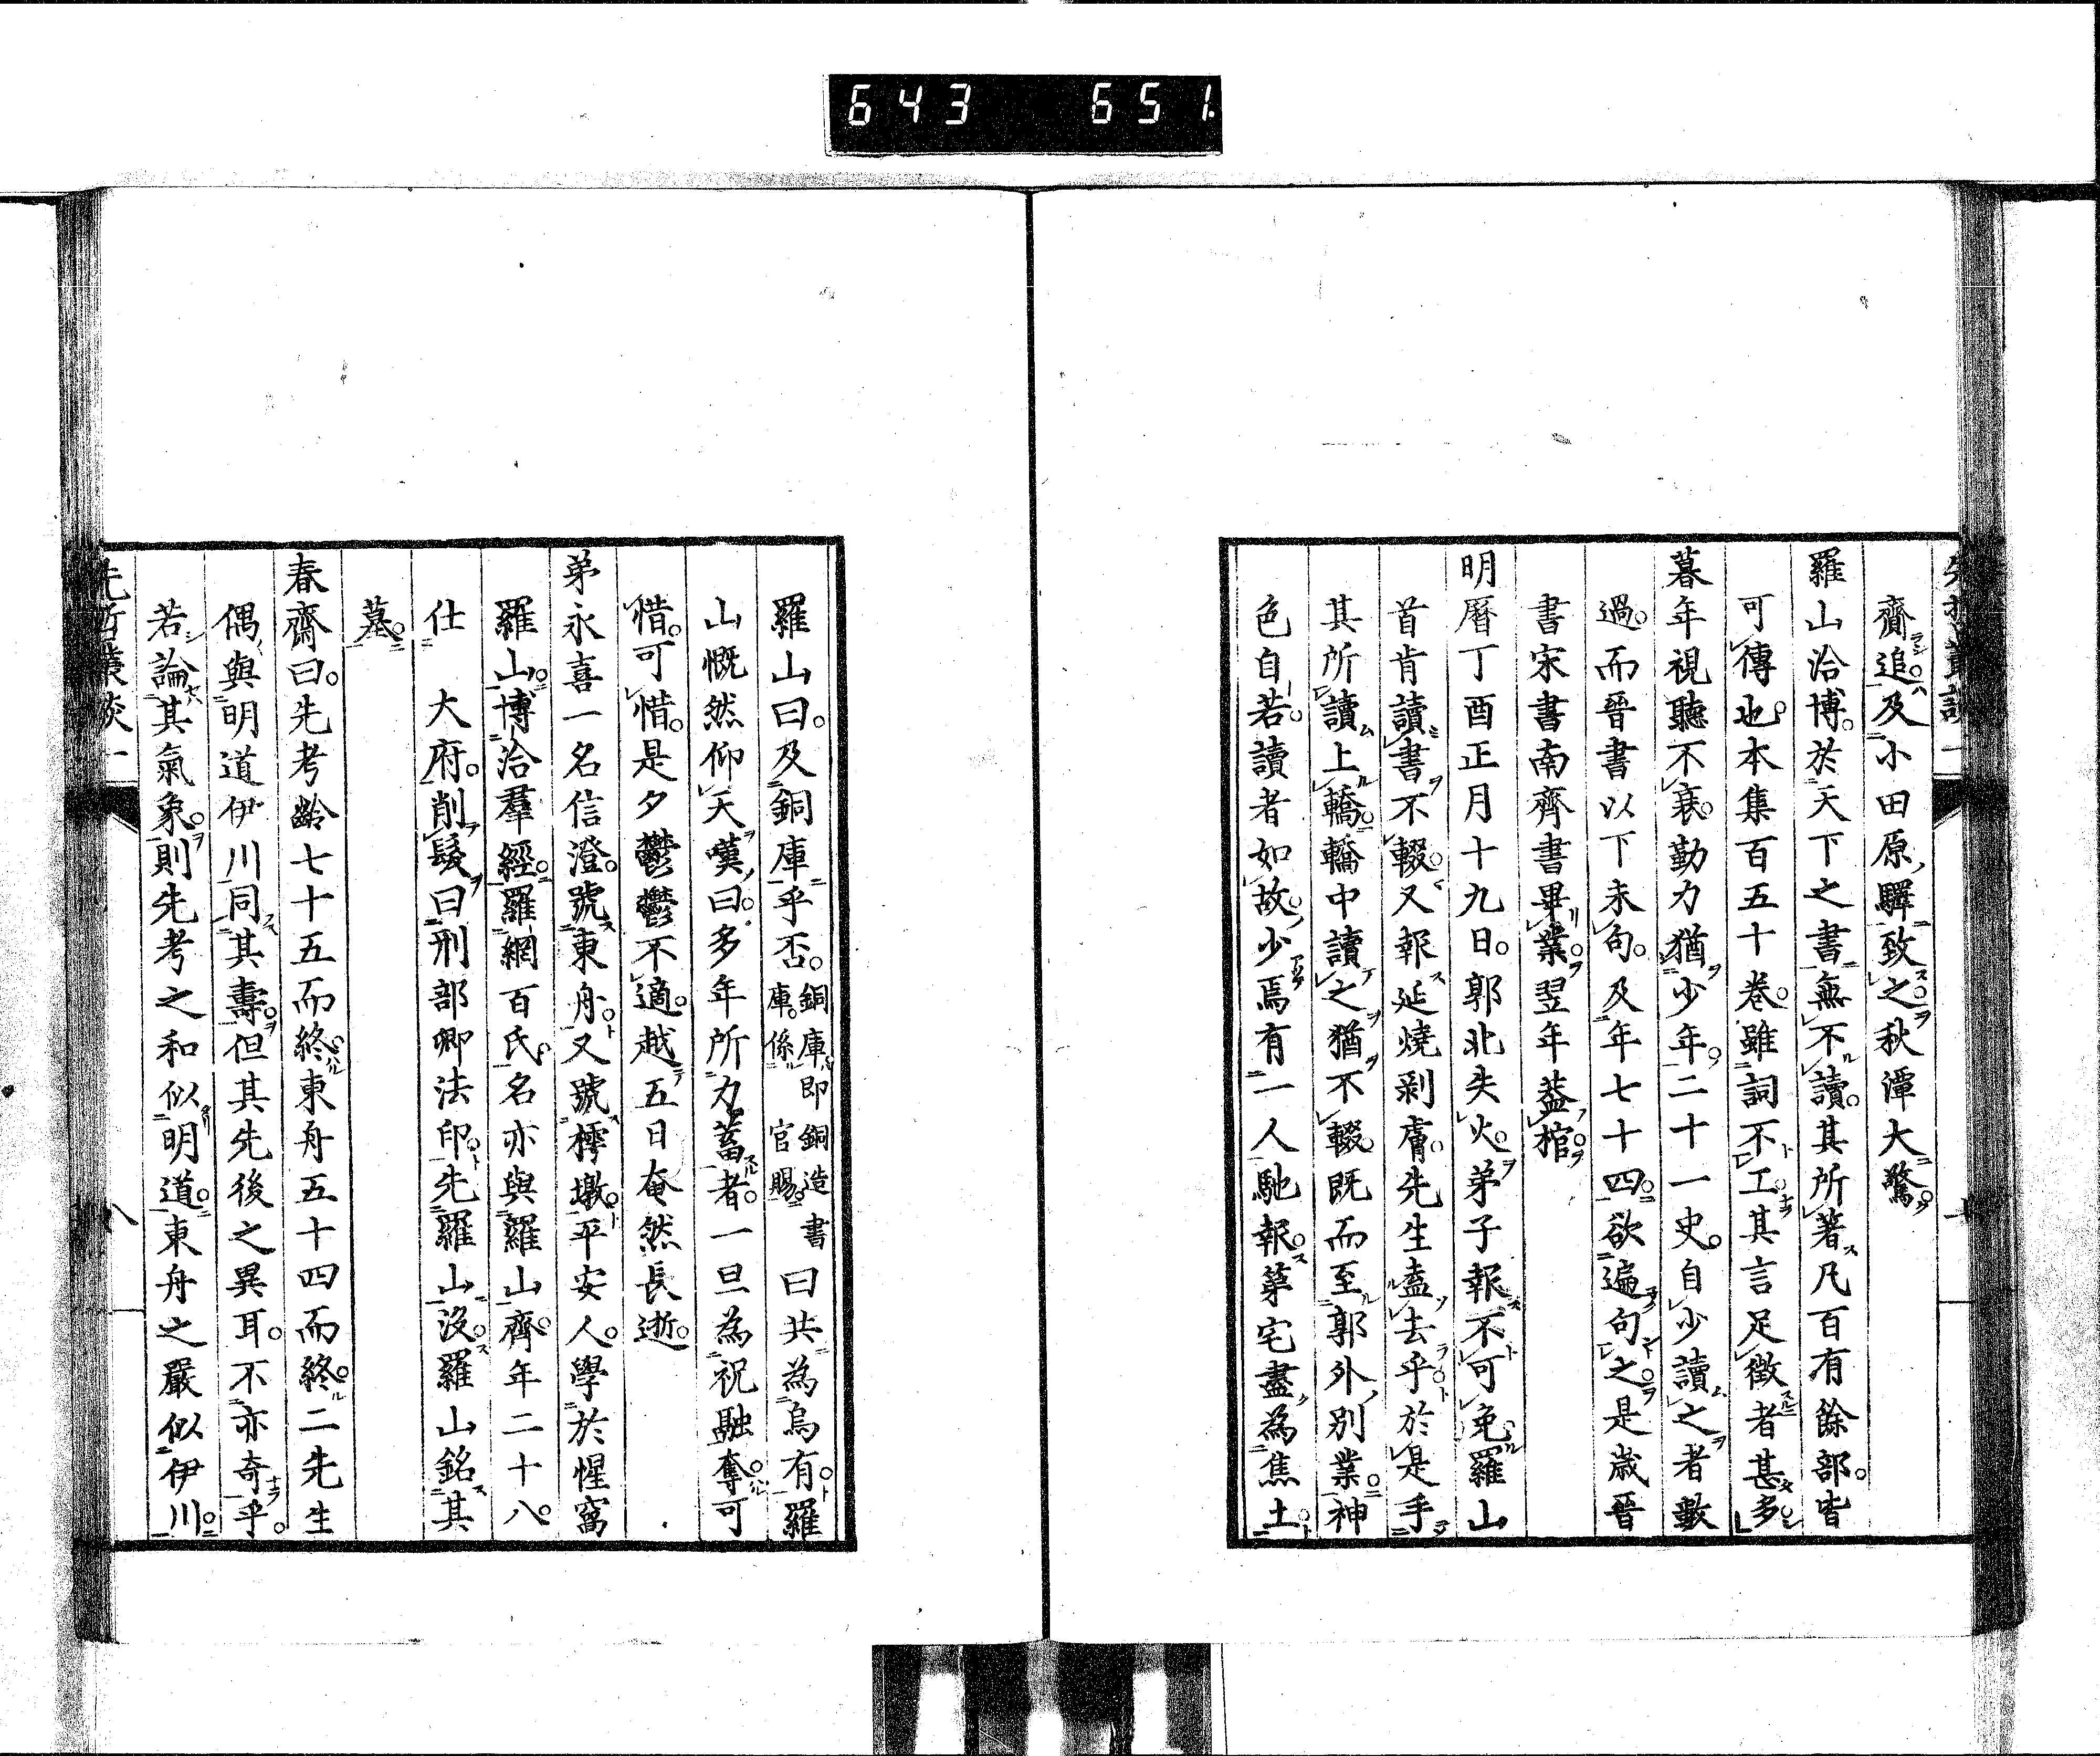 643 651
齎追及小田原驛致之秋潭大驚
羅山洽博於天下之書無不讀其所著凡百有餘部皆
可傳也本集百五十卷雖詞不工其言足徵者甚多
暮年視聽不衰勤力猶少年二十一史自少讀之者數
過而晉書以下未句及年七十四欲遍句之是歲晉
書宋書南齊書畢業翌年蓋棺
明曆丁酉正月十九日郭北失火弟子報不可免羅山
首肯讀書不輟又報延燒剥膚先生盍去乎於是手
其所讀上轎轎中讀之猶不輟既而至郭外別業神
色自若讀者如故少焉有一人馳報第宅盡為焦土
羅山曰及銅庫乎否銅庫即銅造書庫係官賜曰共為烏有羅
山慨然仰天嘆曰多年所力蓄者一旦為祝融奪可
惜可惜是夕鬱鬱不適越五日奄然長逝
弟永喜一名信澄號東舟又號樗墩平安人學於惺窩
羅山博洽羣經羅網百氏名亦與羅山齊年二十八
仕 大府削髮曰刑部卿法印先羅山沒羅山銘其
墓
春齋曰先考齡七十五而終東舟五十四而終二先生
偶與明道伊川同其壽但其先後之異耳不亦奇乎
若論其氣象則先考之和似明道東舟之嚴似伊川
先哲叢談一 八